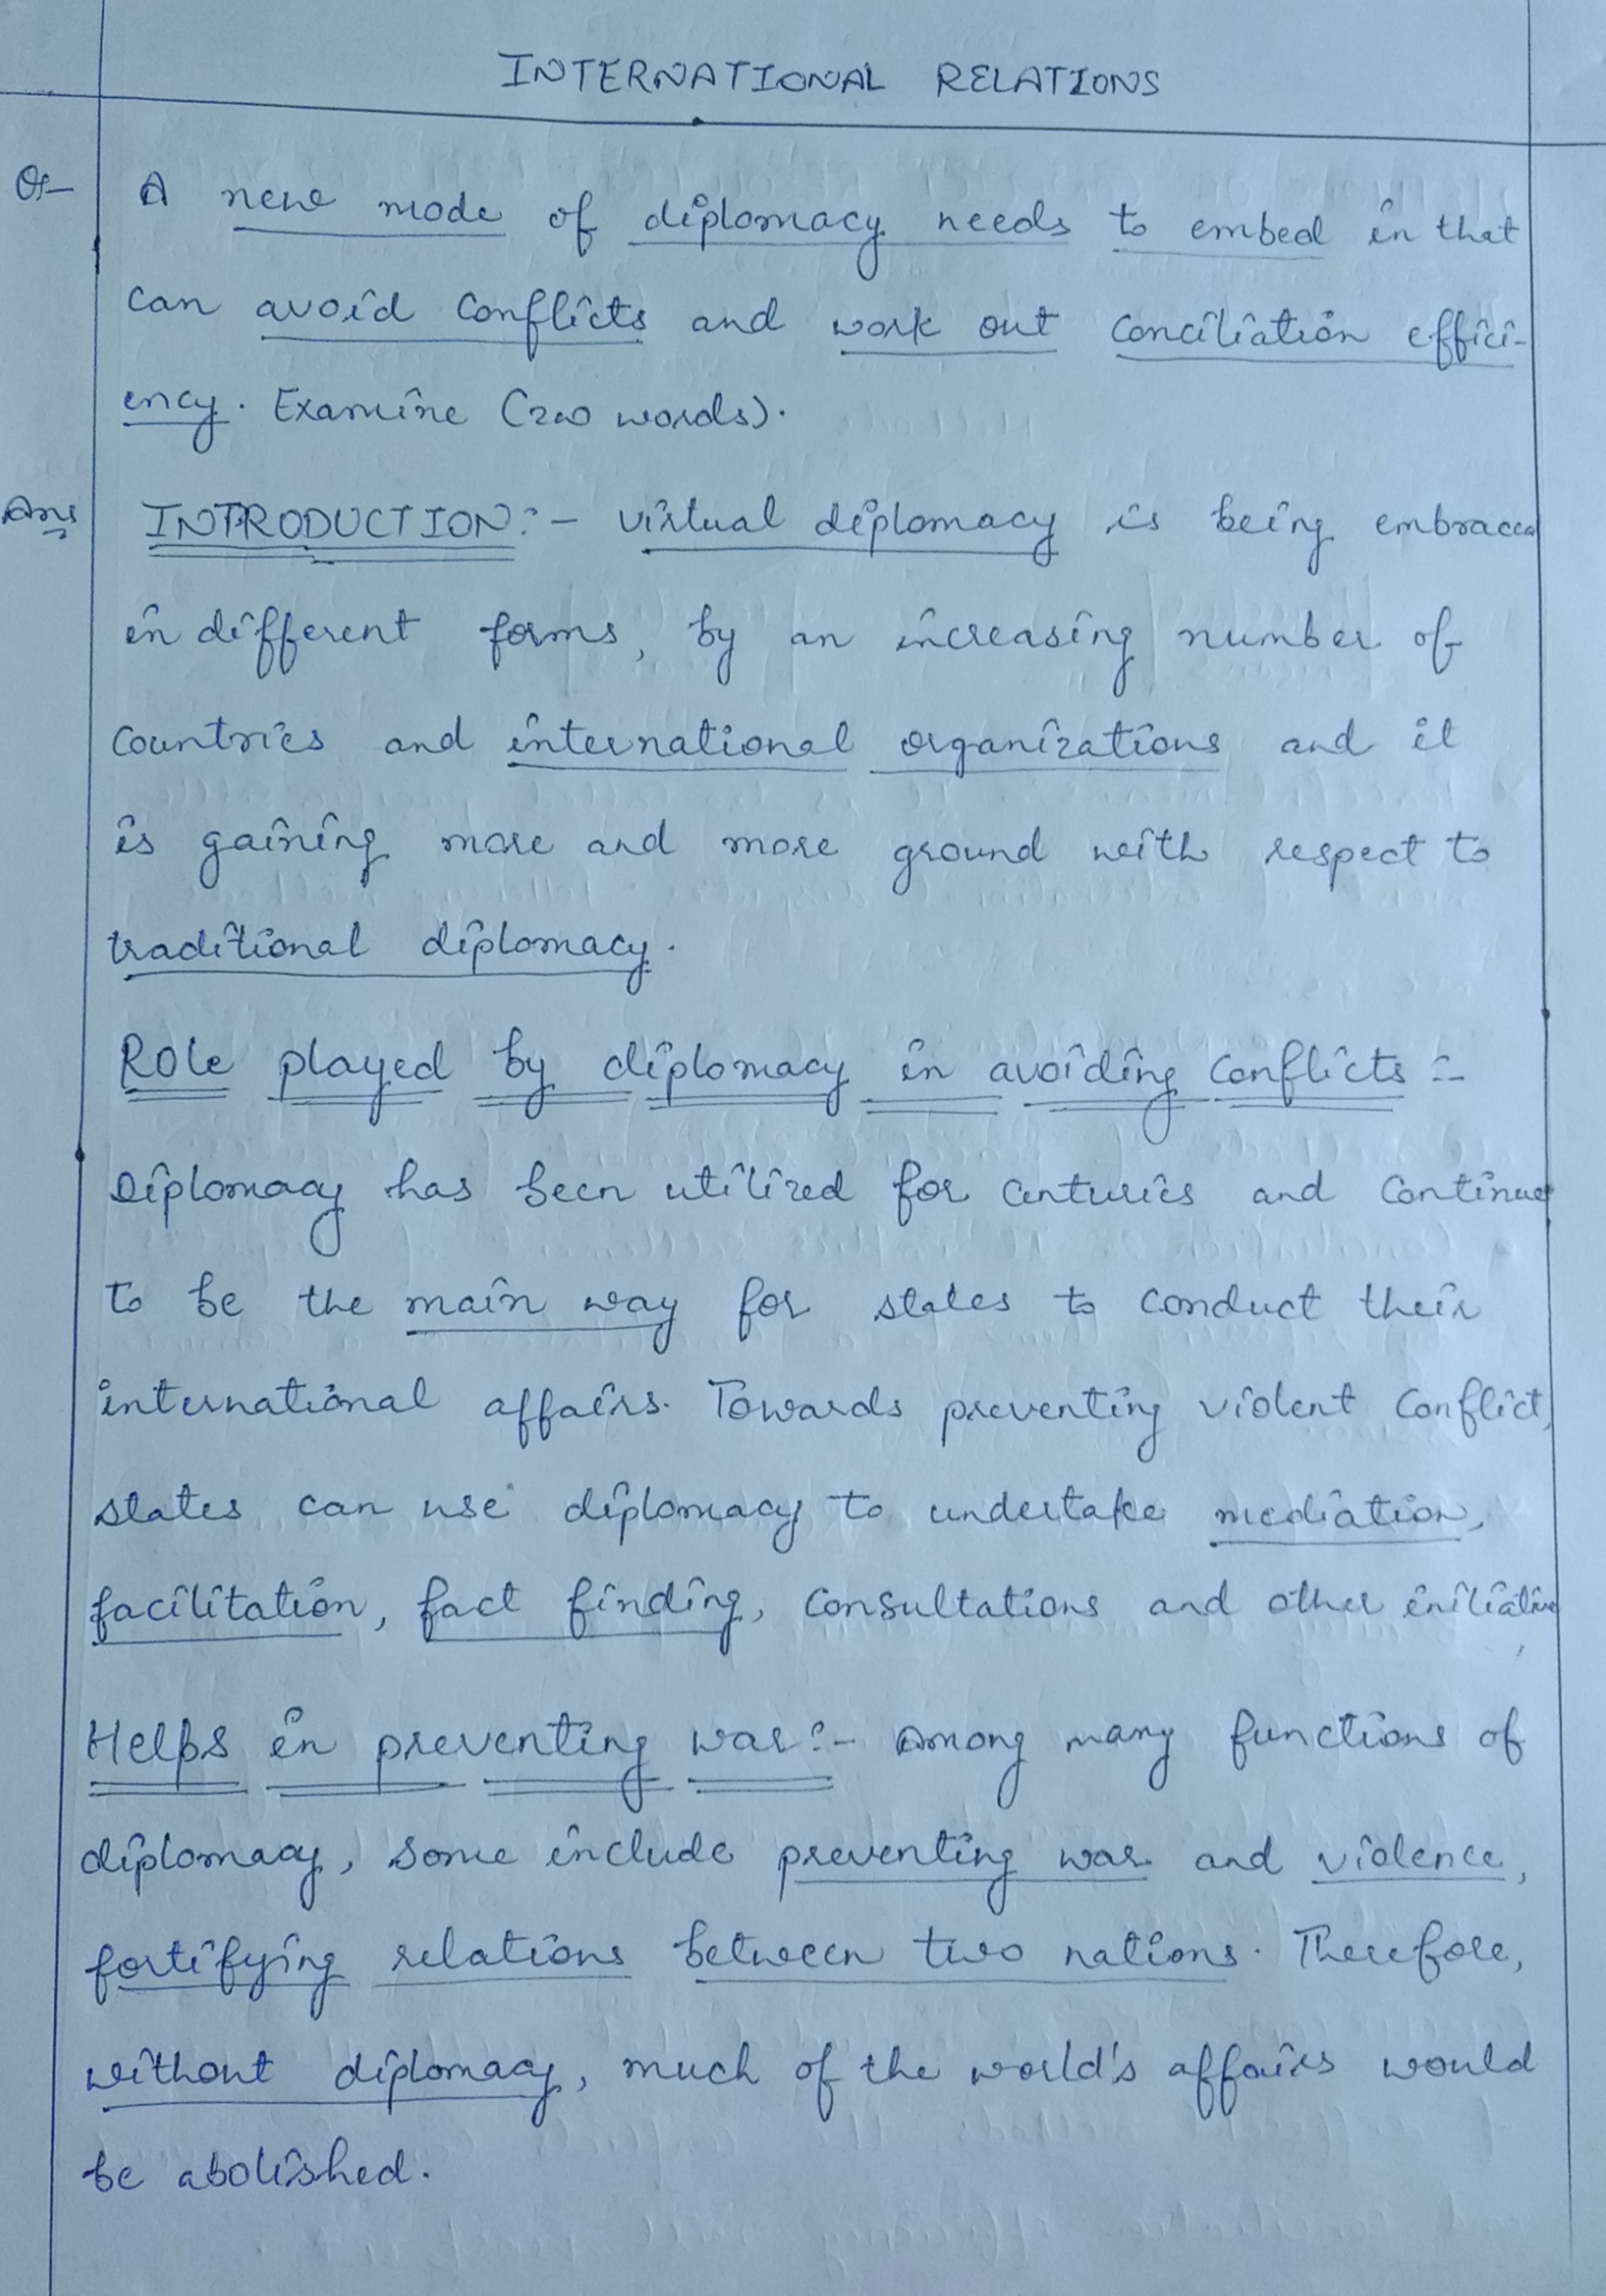 INTERNATIONAL RELATIONS
Q:- A new mode of diplomacy needs to embed in that
can avoid conflicts and work out conciliation effici-
ency. Examine (200 words).
Ans INTRODUCTION:- Virtual diplomacy is being embraced
in different forms, by an increasing number of
countries and international organizations and it
is gaining more and more ground with respect to
traditional diplomacy.
Role played by diplomacy in avoiding conflicts :-
Diplomacy has been utilized for centuries and continues
to be the main way for states to conduct their
international affairs. Towards preventing violent conflict,
states can use diplomacy to undertake mediation,
facilitation, fact finding, consultations and other initiative
Helps in preventing war:- Among many functions of
diplomacy, some include preventing war and violence,
fortifying relations between two nations. Therefore,
without diplomacy, much of the world's affairs would
be abolished.